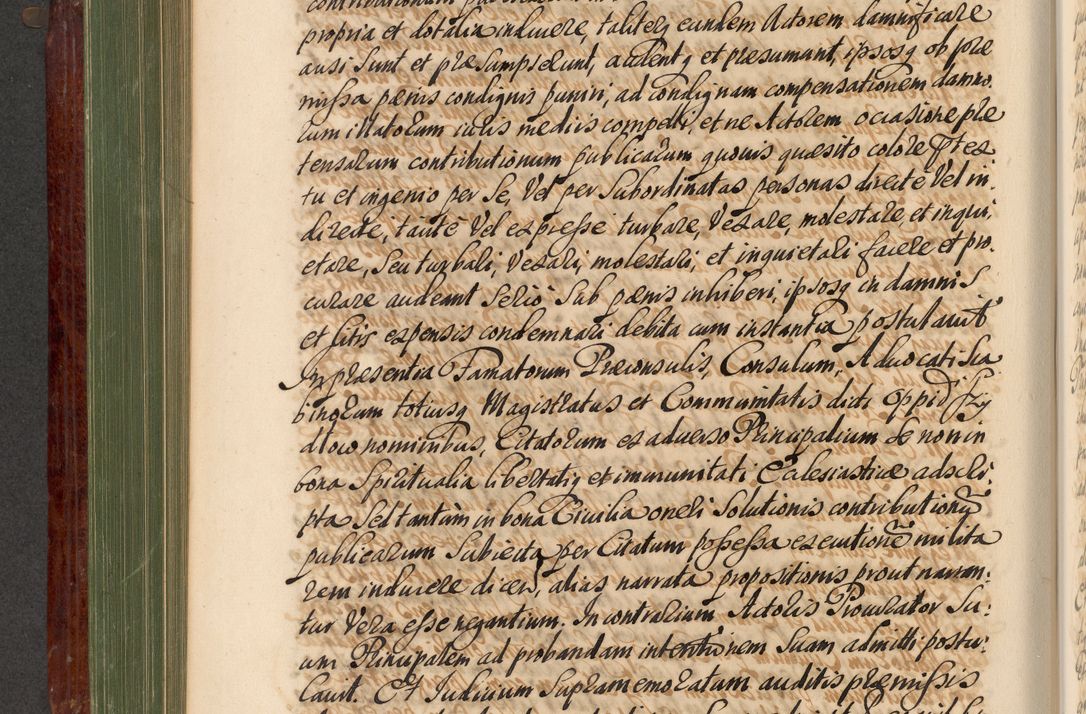 propria et dotalia inducere, taliterq eundem Actorem damnificare
ausi sunt et præsumpserunt, audentq et præsumant, ipsosq ob præ
missa pænis condignis puniri, ad condignam compensationem damno,
rum illatorum iuris mediis compelli, et ne Actorem occasione præ
tensarum contributionum publicarum quouis quæsito colore
tu et ingenio per se, Vel per subordinatas personas directè Vel in,
directè, tacitè Vel expresse turbare, Vexare, molestare, et inqui,
etare, seu turbari, Vexari, molestari, et inquietari facere et pro,
curare audeant seriò sub pænis inhiberi, ipsosq in damnis
et litis expensis condemnari debita cum instantia postulauit
In præsentia Famatorum Præconsulis, Consulum, Aduocati Sca
binorum totiusq Magistratus et Communitatis dicti Oppidi
dlow nominibus, Citatorum ex aduerso Principalium se non in
bona Spiritualia libertatiq et immunitati Ecclesiasticæ adscri,
pta sed tantùm in bona Ciuilia oneri solutionis contributionũ
publicarum subiecta per Citatum possessa executionẽ milita
rem inducere dicen, alias narrata propositionis prout narran,
tur Vera esse negantium. In contrarium Actoris Procurator Su:
um Principalem ad probandam intentionem suam admitti postu:
lauit. Et Iudicium supramemoratum auditis præmissis